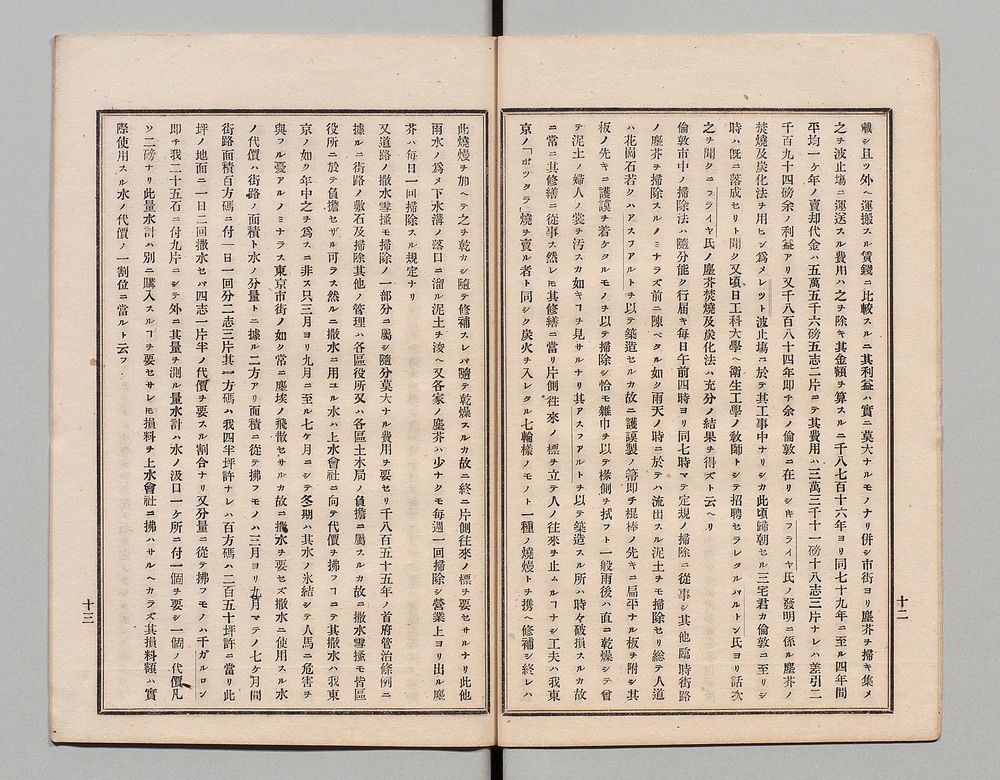 載シ且ツ外ヘ運搬スル賃錢ニ比較スルニ其利益ハ實ニ莫大ナルモノナリ併シ市街ヨリ塵芥ヲ掃キ集メ
之ヲ波止塲ニ運送スル費用ハ之ヲ除キ其金額ヲ算スルニ千八七百十六年ヨリ同七十九年ニ至ル四年間
平均一ケ年ノ賣却代金ハ五萬五千六磅五志二片ニテ其費用ハ三萬三千十一磅十八志三片ナレハ差引二
千百九十四磅余ノ利益アリ又千八百八十四年即チ余ノ倫敦ニ在リシ𪜈フライヤ氏ノ發明ニ係ル塵芥ノ
焚燒及炭化法ヲ用ヒン爲メレツト波止塲ニ於テ其工事中ナリシカ此頃歸朝セル三宅君カ倫敦ニ至リシ
時ハ既ニ落成セリト聞ク又頃日工科大學ヘ衛生工學ノ敎師トシテ招聘セラレタルバルトン氏ヨリ話次
之ヲ聞クニフライヤ氏ノ塵芥焚燒及炭化法ハ充分ノ結果ヲ得ズト云ヘリ
倫敦市中ノ掃除法ハ隨分能ク行屆キ毎日午前四時ヨリ同七時マテ定規ノ掃除ニ從事シ其他臨時街路
ノ塵芥ヲ掃除スルノミナラズ前ニ陳ベタル如ク雨天ノ時ニ於テハ流出スル泥土ヲモ掃除セリ總テ人道
ハ花崗石若クハアスフアルトヲ以テ築造セルカ故ニ護謨製ノ箒即チ棍棒ノ先キニ扁平ナル板ヲ附シ其
板ノ先キニ護謨ヲ着ケタルモノヲ以テ掃除シ恰モ雜巾ヲ以テ椽側ヲ拭フト一般雨後ハ直ニ乾燥シテ曾
テ泥土ノ婦人ノ裳ヲ汚スカ如キヿヲ見サルナリ其アスフアルトヲ以テ築造スル所ハ時々破損スルカ故
ニ常ニ其修繕ニ從事ス然レ𪜈其修繕ニ當リ片側往來ノ標ヲ立テ人ノ往來ヲ止ムルヿナシ工夫ハ我東
京ノ「ボツタラ」燒ヲ賣ル者ト同シク炭火ヲ入レタル七輪樣ノモノト一種ノ燒熳トヲ携ヘ修補シ終レハ
十二
此燒熳ヲ加ヘテ之ヲ乾カシ隨テ修補スレバ隨テ乾燥スルカ故ニ終ニ片側往來ノ標ヲ要セサルナリ此他
雨水ノ爲メ下水溝ノ落口ニ溜ル泥土ヲ浚ヘ又各家ノ塵芥ハ少ナクモ毎週一回掃除シ營業上ヨリ出ル塵
芥ハ毎日一回掃除スル規定ナリ
又道路ノ撒水雪搔モ掃除ノ一部分ニ屬シ隨分莫大ナル費用ヲ要セリ千八百五十五年ノ首府管治條例ニ
據ルニ街路ノ敷石及掃除其他ノ管理ハ各區役所又ハ各區土木局ノ負擔ニ屬スルカ故ニ撒水雪搔モ皆區
役所ニ於テ負擔セザル可ラス然ルニ撒水ニ用ユル水ハ上水會社ニ向テ代價ヲ拂フヿニテ其撒水ハ我東
京ノ如ク年中之ヲ爲スニ非ス只三月ヨリ九月ニ至ル七ケ月ニシテ冬期ハ其水ノ氷結シテ人馬ニ危害ヲ
與フル憂アルノミナラス東京市街ノ如ク常ニ塵埃ノ飛散セサルカ故ニ撒水ヲ要セズ撒水ニ使用スル水
ノ代價ハ街路ノ面積ト水ノ分量トニ據ル二方アリ面積ニ從テ拂フモノハ三月ヨリ九月マテノ七ケ月間
街路面積百方碼ニ付一日一回分二志三片其一方碼ハ我四半坪許ナレハ百方碼ハ二百五十坪許ニ當リ此
坪ノ地面ニ一日二回撒水セバ四志一片半ノ代價ヲ要スル割合ナリ又分量ニ從テ拂フモノハ千ガルロン
即チ我二十五石ニ付九片ニシテ外ニ其量ヲ測ル量水計ハ水ノ汲口一ケ所ニ付一個ヲ要シ一個ノ代價凡
ソ二磅ナリ此量水計ハ別ニ購入スルヿヲ要セサレ𪜈損料ヲ上水會社ニ拂ハサルヘカラズ其損料額ハ實
際使用スル水ノ代價ノ一割位ニ當ルト云フ
十三